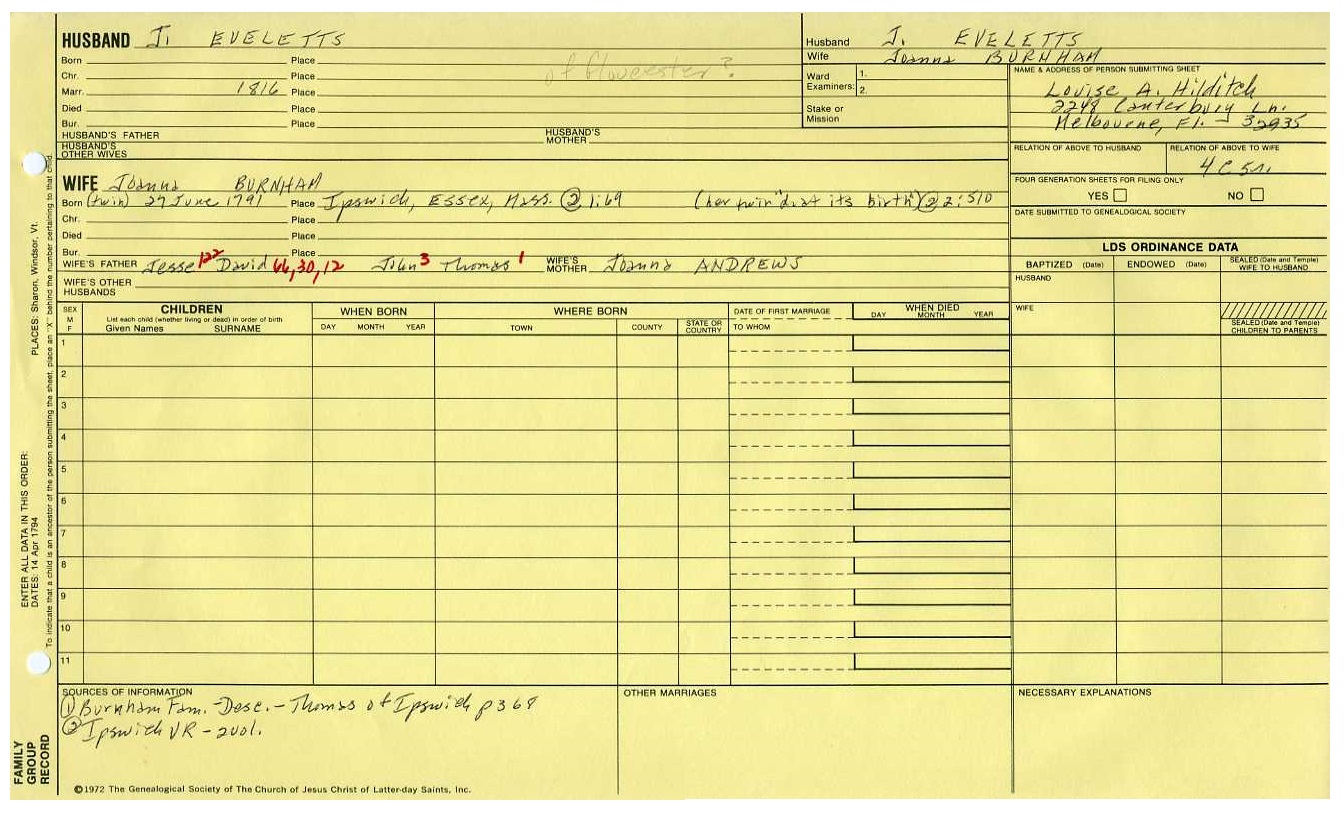 HUSBAND J. EVELETTS
Born Place
Chr. Place of Gloucester?
Marr. 1816 Place
Died Place
Bur. Place
HUSBAND'S FATHER HUSBAND'S MOTHER
HUSBAND'S OTHER WIVES
Husband J. EVELETTS
Wife Joanna BURNHAM
Ward Examiners: 1.
2.
Stake or Mission
NAME & ADDRESS OF PERSON SUBMITTING SHEET
Louise A. Hilditch
2248 Canterbury Ln.
Melbourne, Fl. - 32935
RELATION OF ABOVE TO HUSBAND RELATION OF ABOVE TO WIFE
4 C 5 r.
FOUR GENERATION SHEETS FOR FILING ONLY
YES NO
DATE SUBMITTED TO GENEALOGICAL SOCIETY
LDS ORDINANCE DATA
BAPTIZED (Date) ENDOWED (Date) SEALED (Date and Temple) WIFE TO HUSBAND
HUSBAND
WIFE
SEALED (Date and Temple) CHILDREN TO PARENTS
WIFE Joanna BURNHAM
Born (twin) 27 June 1791 Place Ipswich, Essex, Mass. ② 1:69 (her twin "d. at its birth") ② 2:510
Chr. Place
Died Place
Bur. Place
WIFE'S FATHER Jesse 122 David 66, 30, 12 John 3 Thomas 1 WIFE'S MOTHER Joanna ANDREWS
WIFE'S OTHER HUSBANDS
SEX M F
CHILDREN
List each child (whether living or dead) in order of birth
Given Names SURNAME
WHEN BORN
DAY MONTH YEAR
WHERE BORN
TOWN COUNTY STATE OR COUNTRY
DATE OF FIRST MARRIAGE
TO WHOM
WHEN DIED
DAY MONTH YEAR
1
2
3
4
5
6
7
8
9
10
11
SOURCES OF INFORMATION
① Burnham Fam. - Desc. - Thomas of Ipswich p 368
② Ipswich VR - 2 vol.
OTHER MARRIAGES
NECESSARY EXPLANATIONS
©1972 The Genealogical Society of The Church of Jesus Christ of Latter-day Saints, Inc.
FAMILY GROUP RECORD
ENTER ALL DATA IN THIS ORDER:
DATES: 14 Apr 1794
PLACES: Sharon, Windsor, Vt.
To indicate that a child is an ancestor of the person submitting the sheet, place an "X" behind the number pertaining to that child.